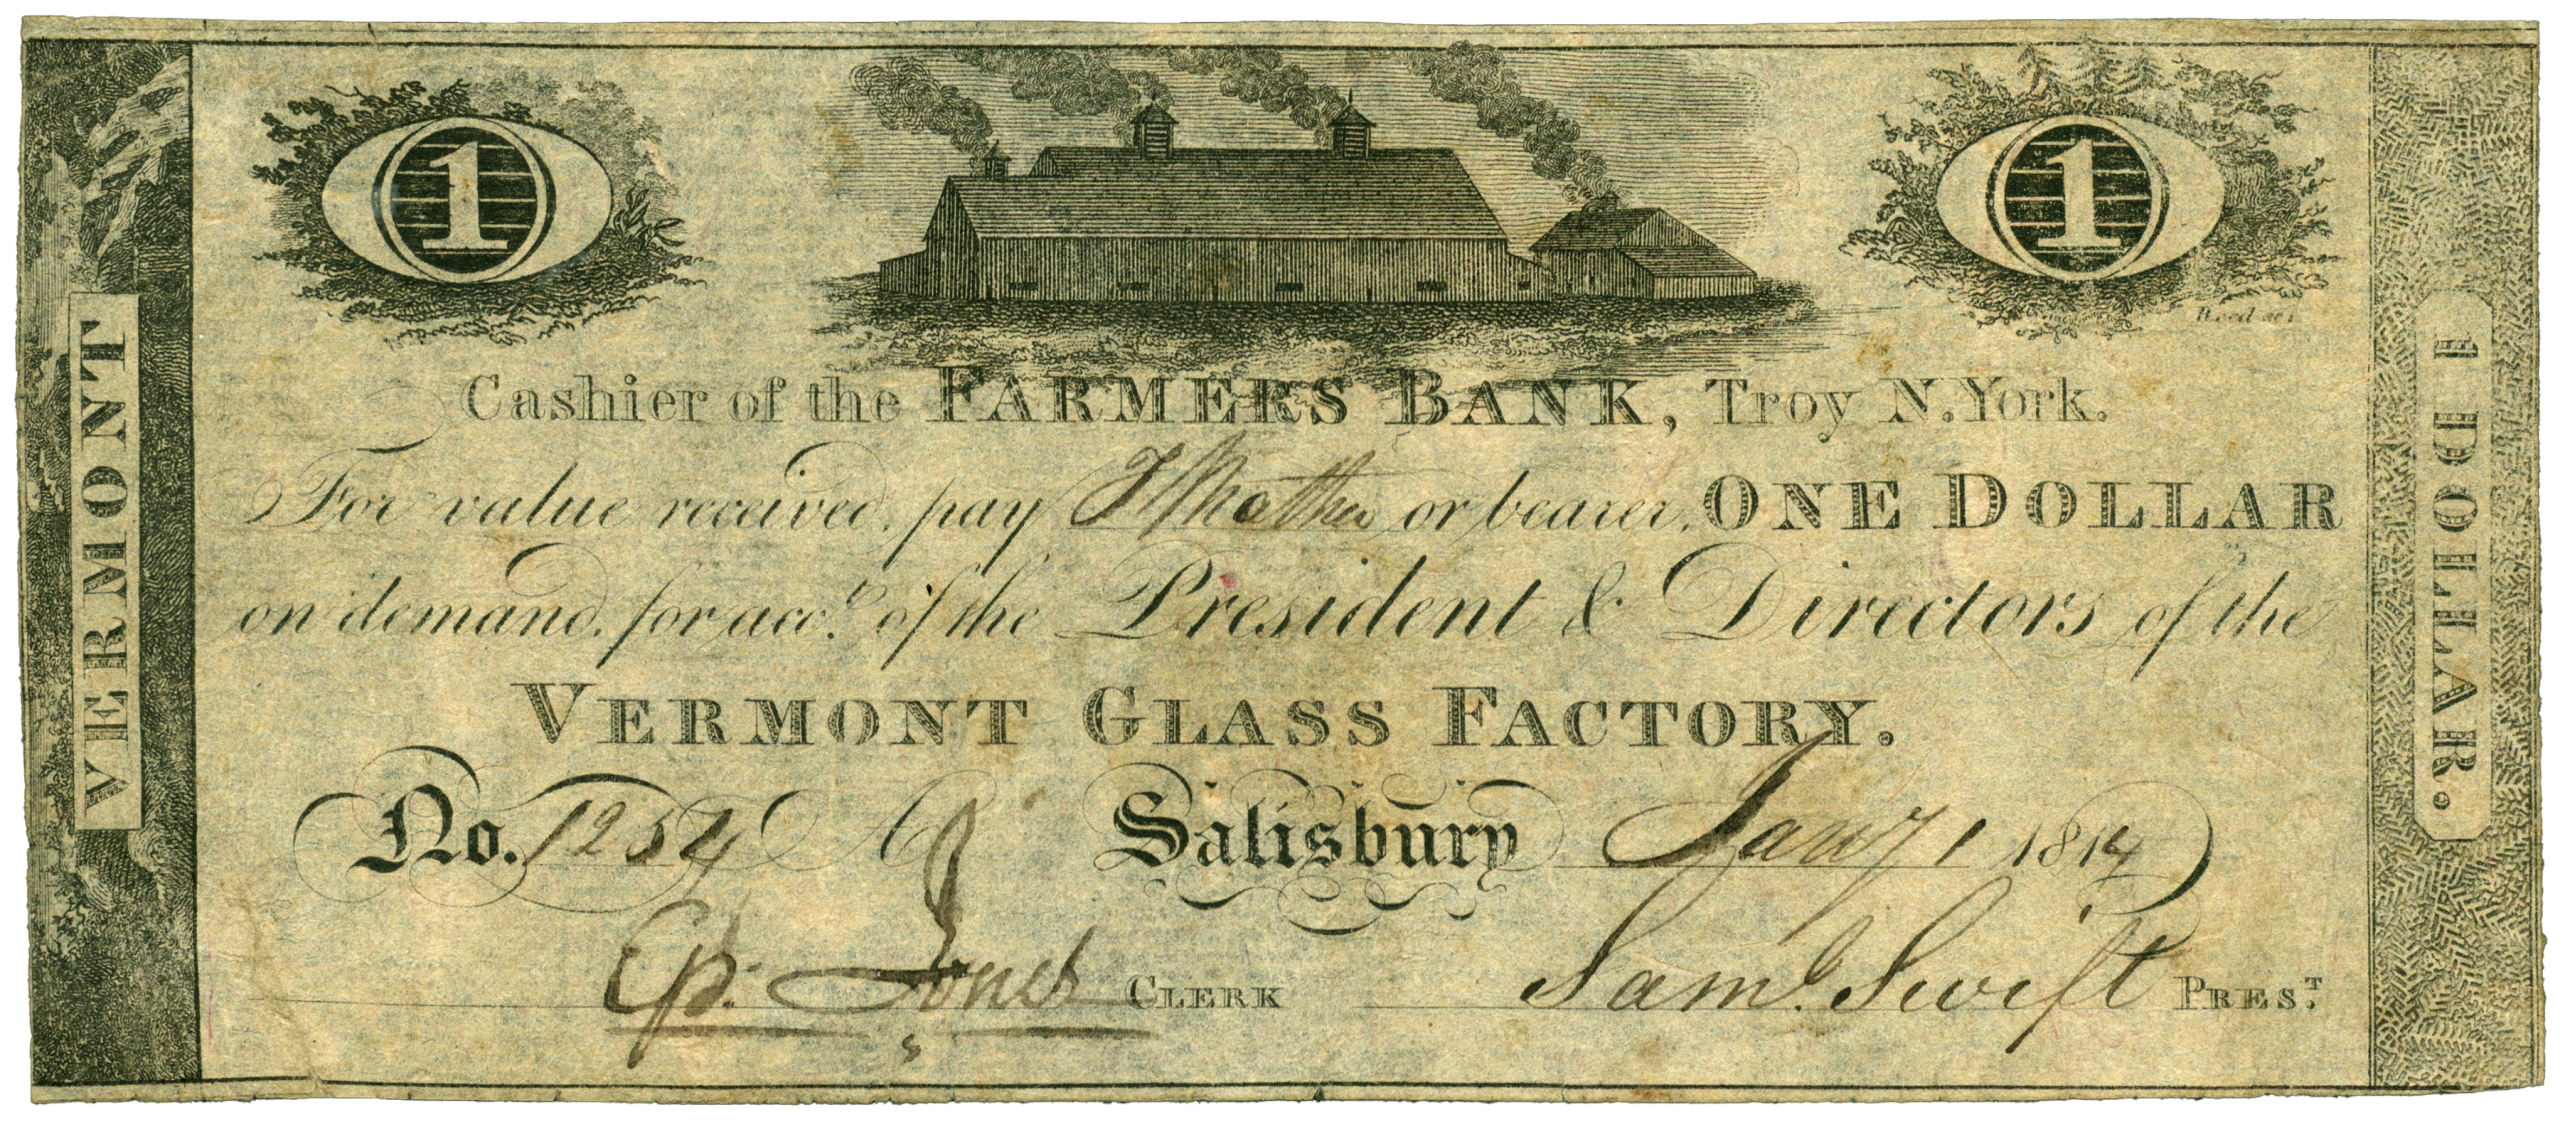 1
1
Reed sc.
VERMONT
1 DOLLAR.
Cashier of the FARMERS BANK, Troy N.York.
For value received, pay J Mather or bearer, ONE DOLLAR
on demand, for acct. of the President & Directors of the
VERMONT GLASS FACTORY.
No. 1254 A Salisbury Jany 1 1814
Ep. Jones CLERK Saml. Swift PREST.